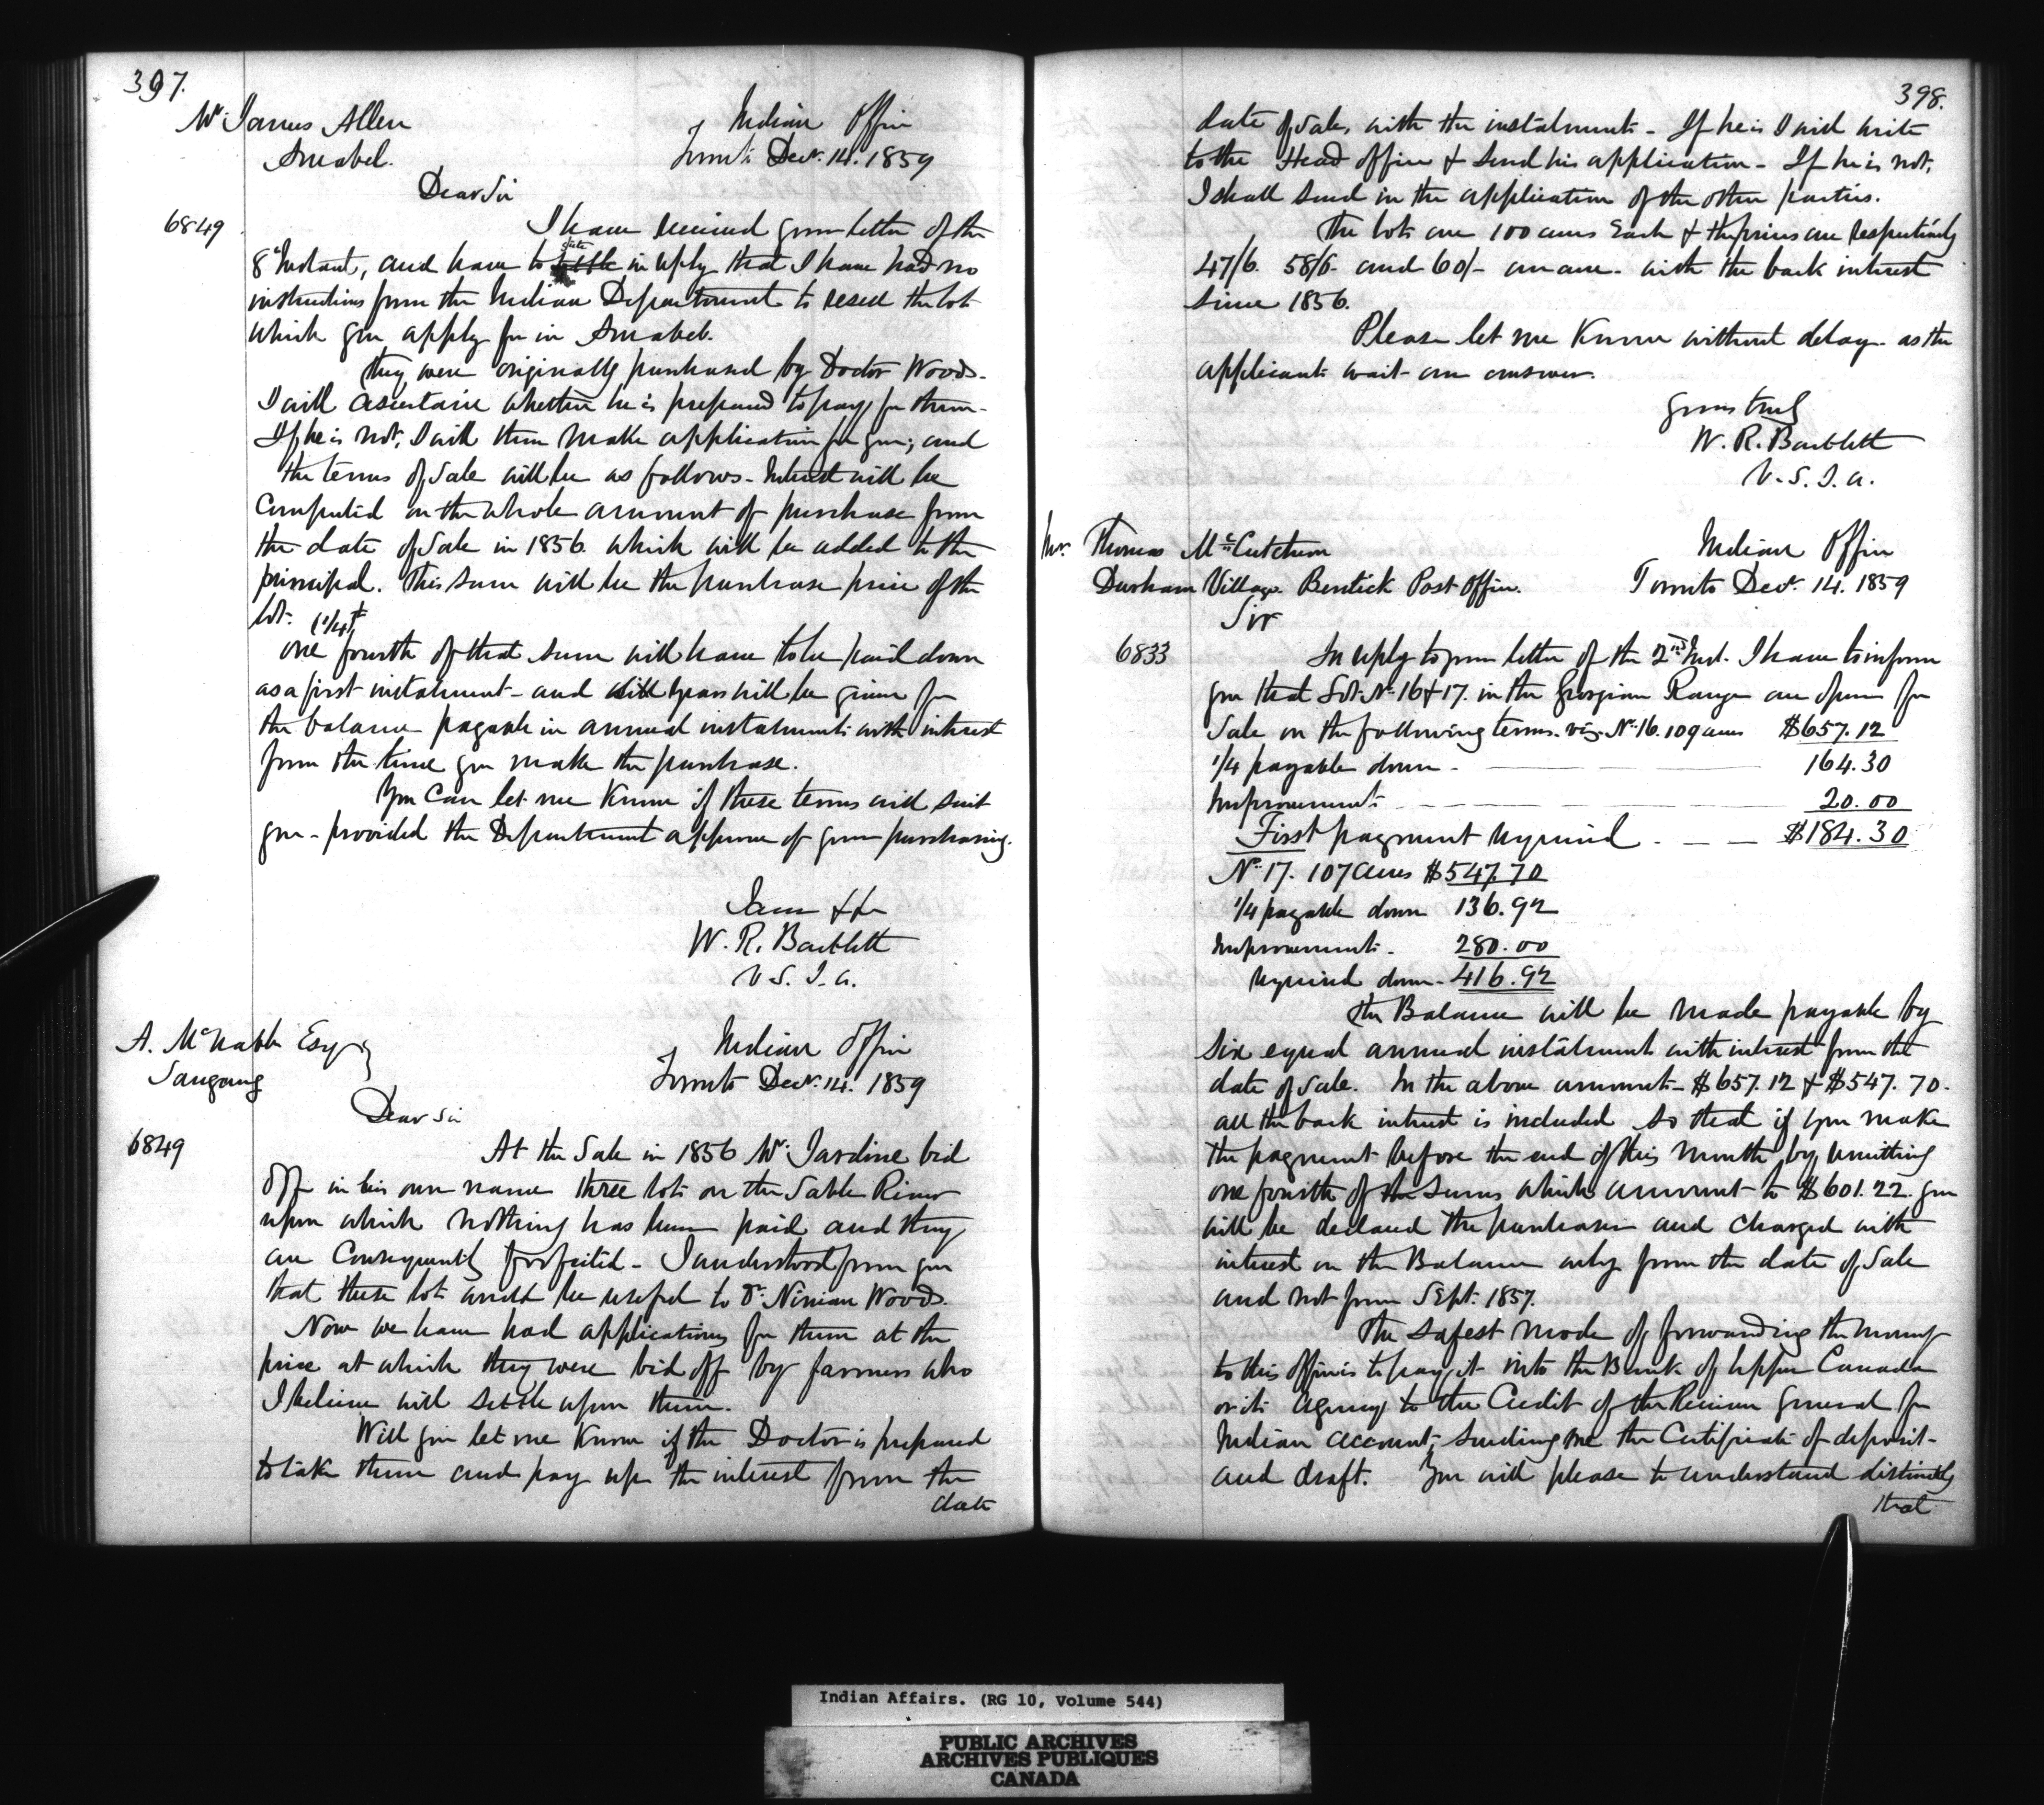 397.
Mr. James Allen
Amabel.
Indian Office
Toronto Decr. 14. 1859
Dear Sir
6849
I have received your letter of the
8th Instant, and have to settle state in reply that I have had no
instructions from the Indian Department to resell the lots
which you apply for in Amabel.
They were originally purchased by Doctor Woods.
I will ascertain whether he is prepared to pay for them.
If he is not, I will then make application for you; and
the terms of Sale will be as follows - Interest will be
computed on the whole amount of purchase from
the date of Sale in 1856. which will be added to the
principal. This sum will be the purchase price of the
lot. (1/4th
one fourth of that sum will have to be paid down
as a first instalment - and years will be given for
the balance payable in annual instalments with interest
from the time you make the purchase.
You can let me know if these terms will suit
you - provided the Department approve of your purchasing.
I am &c
W. R. Bartlett
V. S. I. A.
A. McNabb Esqr
Saugeeng
Indian Office
Toronto Decr. 14. 1859
Dear Sir
6849
At the Sale in 1856 Mr. Jardine bid
off in his own name three lots on the Sable River
upon which nothing has been paid and they
are consequently forfeited - I understood from you
that these lots would be useful to Dr. Ninian Woods.
Now we have had applications for them at the
price at which they were bid off by farmers who
I believe will settle upon them.
Will you let me know if the Doctor is prepared
to take them and pay up the interest from the
date
398.
date of Sale, with the instalments - If he is I will write
to the Head office & send his application - If he is not,
I shall send in the application of the other parties.
The lots are 100 acres Each & the prices are respectively
47/6. 58/6. and 60/- an acre. with the back interest
since 1856.
Please let me know without delay. as the
applicants wait an answer.
yours truly
W. R. Bartlett
V. S. I. A.
Mr. Thomas McCutcheon
Durham Village. Bentick Post Office.
Indian Office
Toronto Decr. 14. 1859
Sir
6833
In reply to your letter of the 2nd Inst. I have to inform
you that Lots No. 16 & 17. in the Georgian Range are open for
Sale on the following terms. viz. No. 16. 109 acres $657.12
1/4 payable down - 164.30
Improvements - 20.00
First payment required - $184.30
No. 17. 107 Acres $547.70
1/4 payable down 136.92
Improvements. 280.00
required down - 416.92
The Balance will be made payable by
six equal annual instalments with interest from the
date of Sale. In the above amounts - $657.12 & $547.70.
all the back interest is included so that if you make
the payment before the end of this month by remitting
one fourth of the sums which amount to $601.22. you
will be declared the purchaser and charged with
interest on the Balance only from the date of Sale
and not from Sept. 1857.
The safest mode of forwarding the money
to this office is to pay it into the Bank of Upper Canada
or its Agency to the Credit of the Receiver General for
Indian account, sending me the Certificate of deposit -
and draft. You will please to understand distinctly
that
Indian Affairs. (RG 10, Volume 544)
PUBLIC ARCHIVES
ARCHIVES PUBLIQUES
CANADA